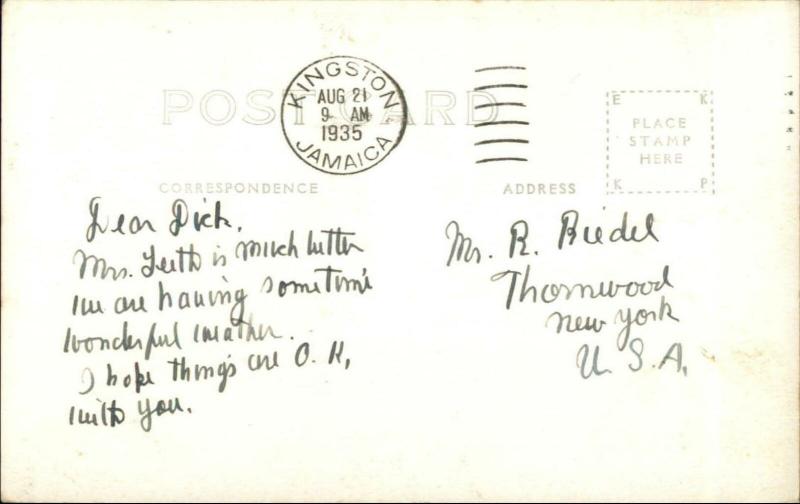 POST CARD
KINGSTON
AUG 21
9 AM
1935
JAMAICA
E K
PLACE
STAMP
HERE
K P
CORRESPONDENCE
ADDRESS
Dear Dick,
Mrs. is much better
we are having some
wonderful weather.
I hope things are O.K,
with you.
Mr. R. Riedel
Thornwood
New York
U.S.A.